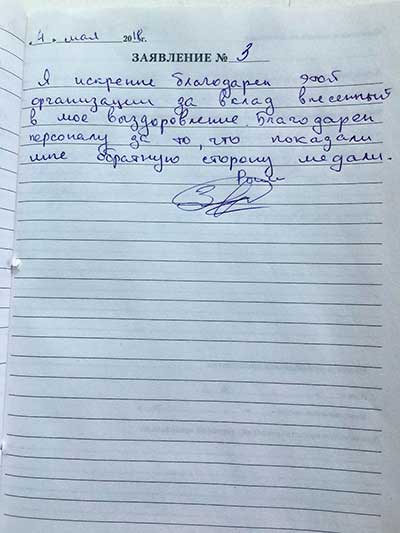 4. мая 2018г.
ЗАЯВЛЕНИЕ № 3
Я искрене благодарен этой
организации за вклад внесенный
в мое выздоровление. Благодарен
персоналу за то, что показали
мне обратную сторону медали.